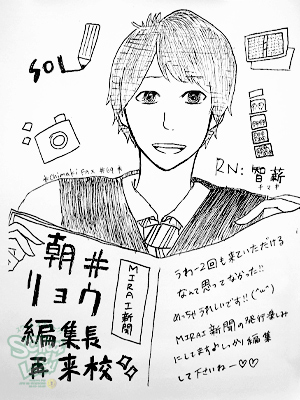 SOL
*chimaki fax #09*
RN: 智薪
チマキ
朝井
リョウ
編集長
再来校
MIRAI新聞
うわー2回も来ていただける
なんて思ってなかった!!
めっちゃうれしいです!! (^ω^)
MIRAI新聞の発行楽しみ
にしてますよ しっかり編集
して下さいねー♡♡